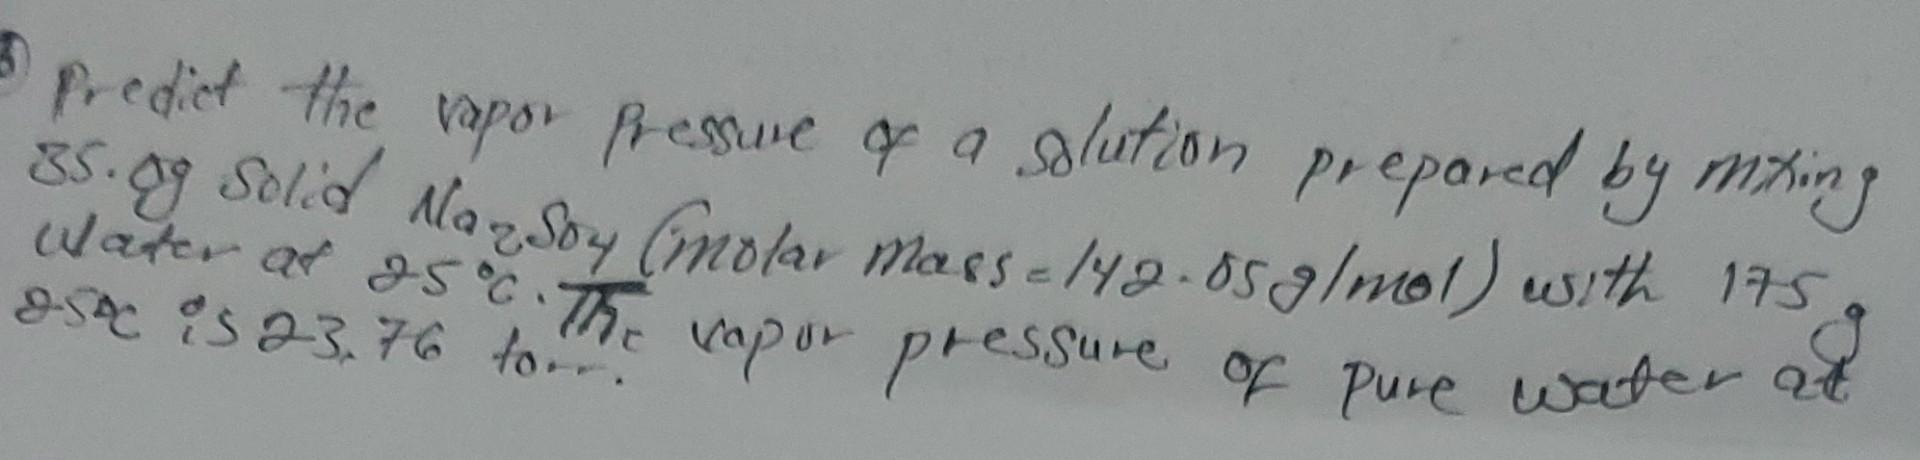 Predict the vapor Pressure of a solution prepared by mixing
35.0g Solid Na2SO4 (molar mass = 142.05g/mol) with 175g
Water at 25°C. The vapor pressure of pure water at
25°C is 23.76 torr.